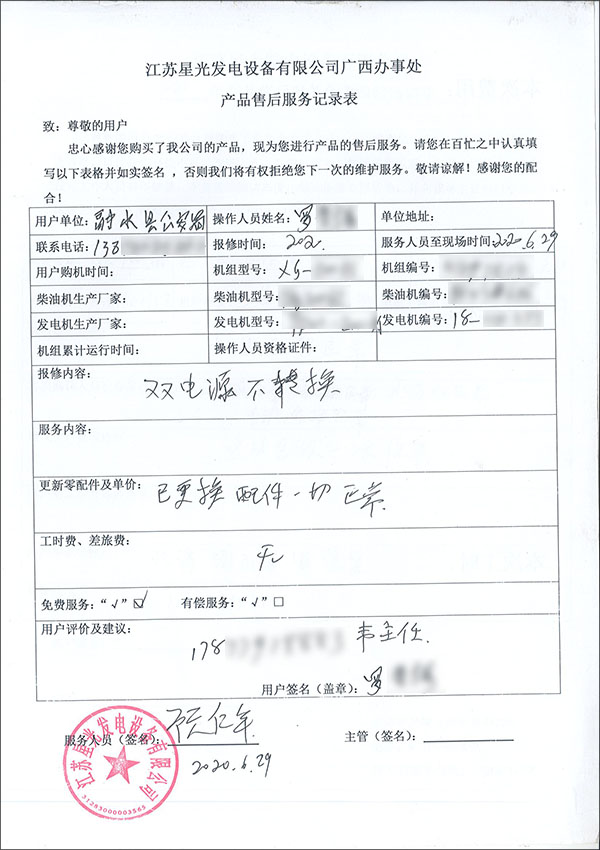 江苏星光发电设备有限公司广西办事处
产品售后服务记录表
致：尊敬的用户
忠心感谢您购买了我公司的产品，现为您进行产品的售后服务。请您在百忙之中认真填
写以下表格并如实签名，否则我们将有权拒绝您下一次的维护服务。敬请谅解！感谢您的配
合！
用户单位：融水县公安局 操作人员姓名：罗 单位地址：
联系电话：138 报修时间：202 服务人员至现场时间：2020.6.29
用户购机时间： 机组型号：XG- 机组编号：
柴油机生产厂家： 柴油机型号： 柴油机编号：
发电机生产厂家： 发电机型号： 发电机编号：18-
机组累计运行时间： 操作人员资格证件：
报修内容：
双电源不转换
服务内容：
更新零配件及单价：已更换配件一切正常
工时费、差旅费：
无
免费服务：“√”☑ 有偿服务：“√”□
用户评价及建议：
178 韦主任.
用户签名（盖章）：罗
服务人员（签名）： 主管（签名）：
2020.6.29
江苏星光发电设备有限公司